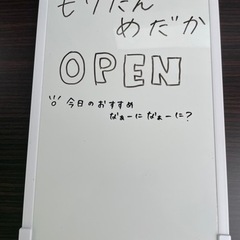 もりたん
めだか
OPEN
今日のおすすめ
なぁーになぁーに?